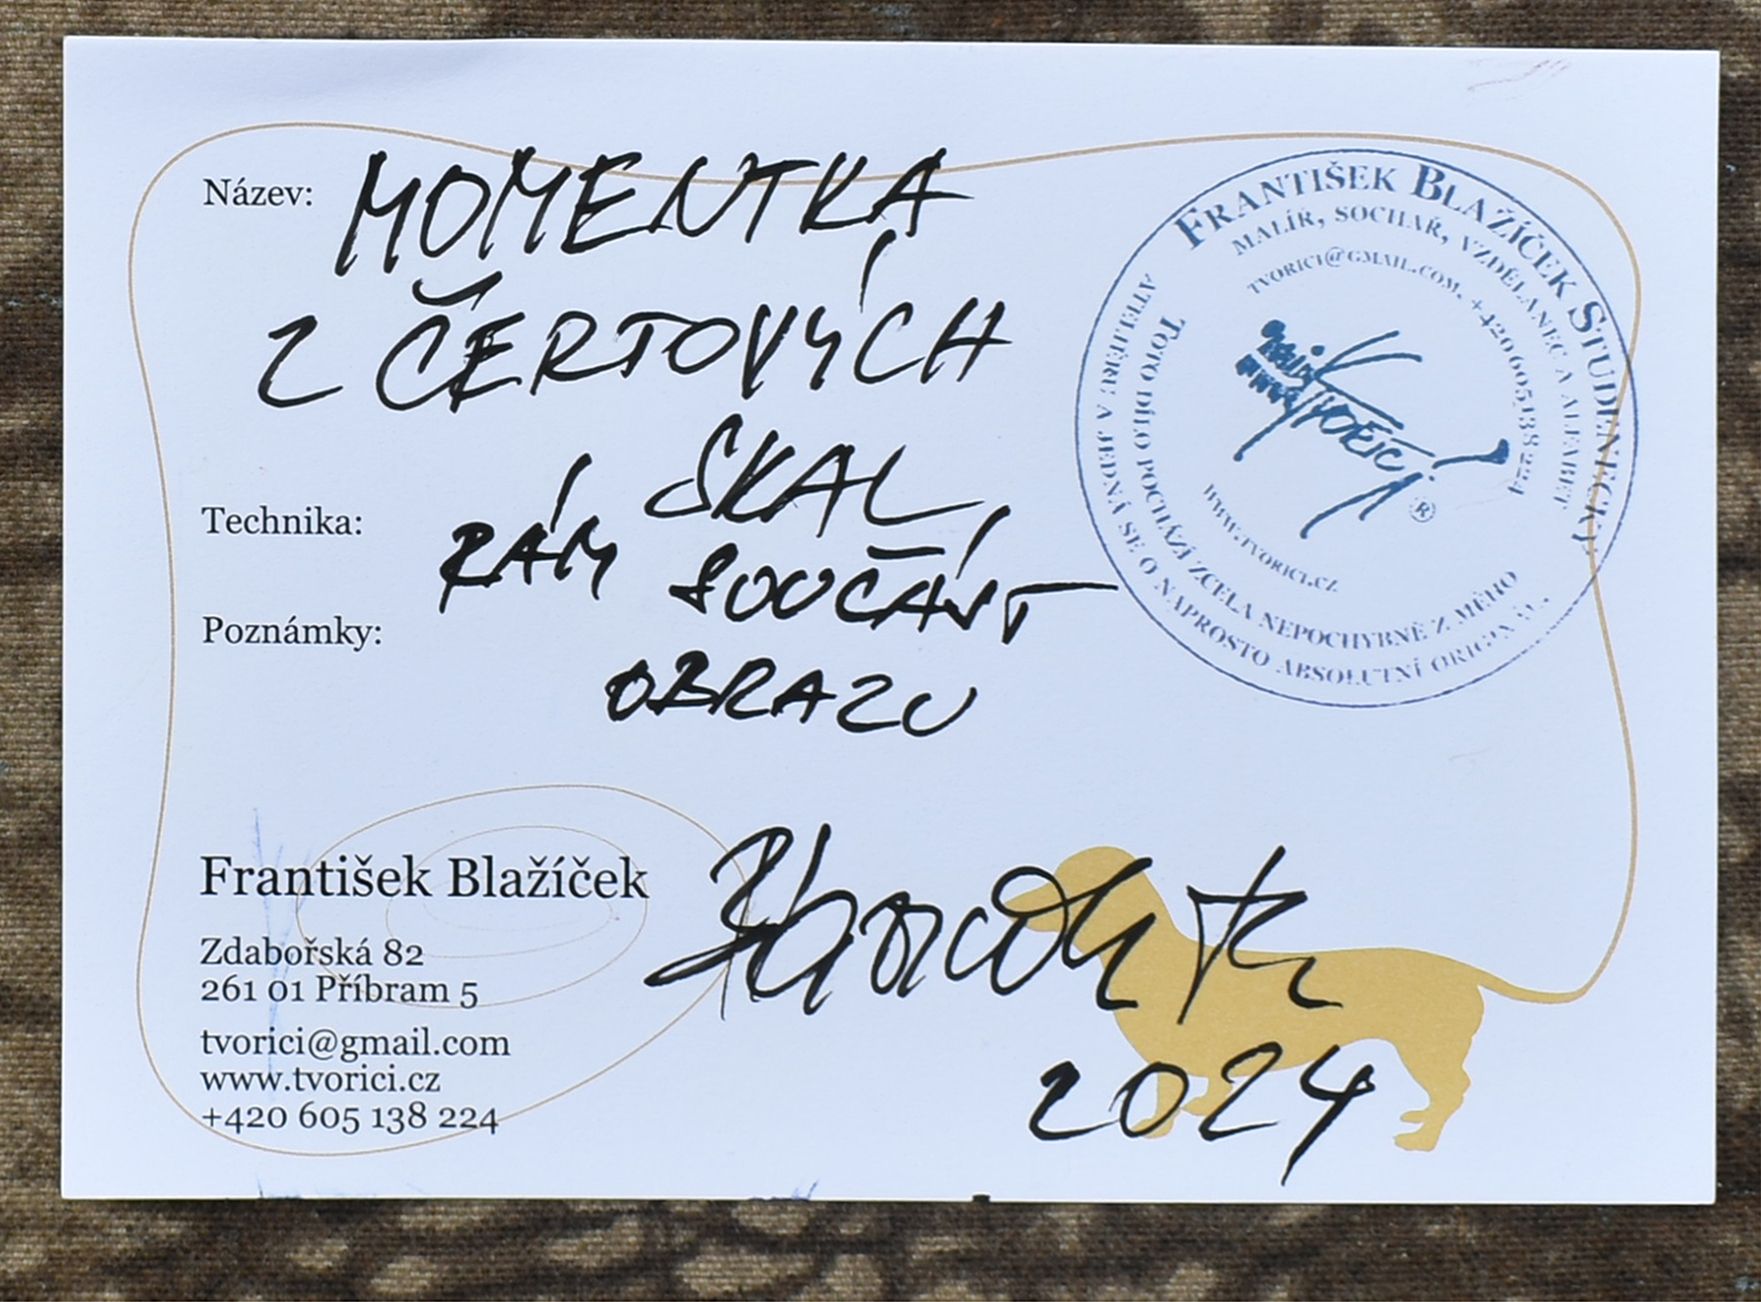 Název: MOMENTKA
Z ČERTOVÝCH
SKAL,
Technika:
RÁM SOUČÁST
Poznámky:
OBRAZU
František Blažíček
Zdabořská 82
261 01 Příbram 5
tvorici@gmail.com
www.tvorici.cz
+420 605 138 224
2024
FRANTIŠEK BLAŽÍČEK STUDENECKÝ,
MALÍŘ, SOCHAŘ, VZDĚLANEC A ALFABET
TVORICI@GMAIL.COM, +420 605 138 224
WWW.TVORICI.CZ
TOTO DÍLO POCHÁZÍ ZCELA NEPOCHYBNĚ Z MÉHO
ATELIÉRU A JEDNÁ SE O NAPROSTO ABSOLUTNÍ ORIGINÁL.
TVOŘÍCÍ
®